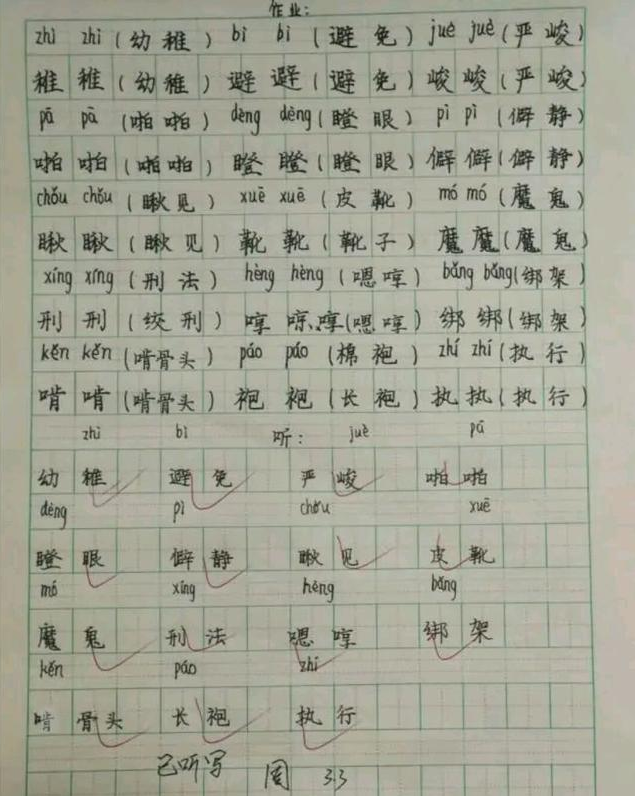 作业:
zhì zhì (幼稚) bì bì (避免) juè juè (严峻)
稚稚(幼稚) 避避(避免) 峻峻(严峻)
pā pā (啪啪) dèng dèng (瞪眼) pì pì (僻静)
啪啪(啪啪) 瞪瞪(瞪眼) 僻僻(僻静)
chǒu chǒu (瞅见) xuē xuē (皮靴) mó mó (魔鬼)
瞅瞅(瞅见) 靴靴(靴子) 魔魔(魔鬼)
xíng xíng (刑法) hèng hèng (嗯哼) bǎng bǎng (绑架)
刑刑(绞刑) 哼哼(嗯哼) 绑绑(绑架)
kěn kěn (啃骨头) páo páo (棉袍) zhí zhí (执行)
啃啃(啃骨头) 袍袍(长袍) 执执(执行)
zhì bì 听: juè pā
幼稚 避免 严峻 啪啪
dèng pì chǒu xuē
瞪眼 僻静 瞅见 皮靴
mó xíng hēng bǎng
魔鬼 刑法 嗯哼 绑架
kěn páo zhí
啃骨头 长袍 执行
已听写 周 3.3